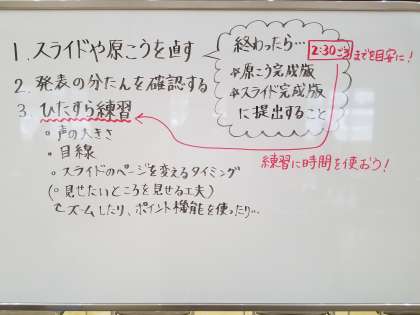 1. スライドや原こうを直す
2. 発表の分たんを確認する
3. ひたすら練習
○声の大きさ
○目線
○スライドのページを変えるタイミング
(○見せたいところを見せる工夫)
ズームしたり、ポイント機能を使ったり…
終わったら…
2:30ごろまでを目安に!
☆原こう完成版
☆スライド完成版
に提出すること
練習に時間を使おう!